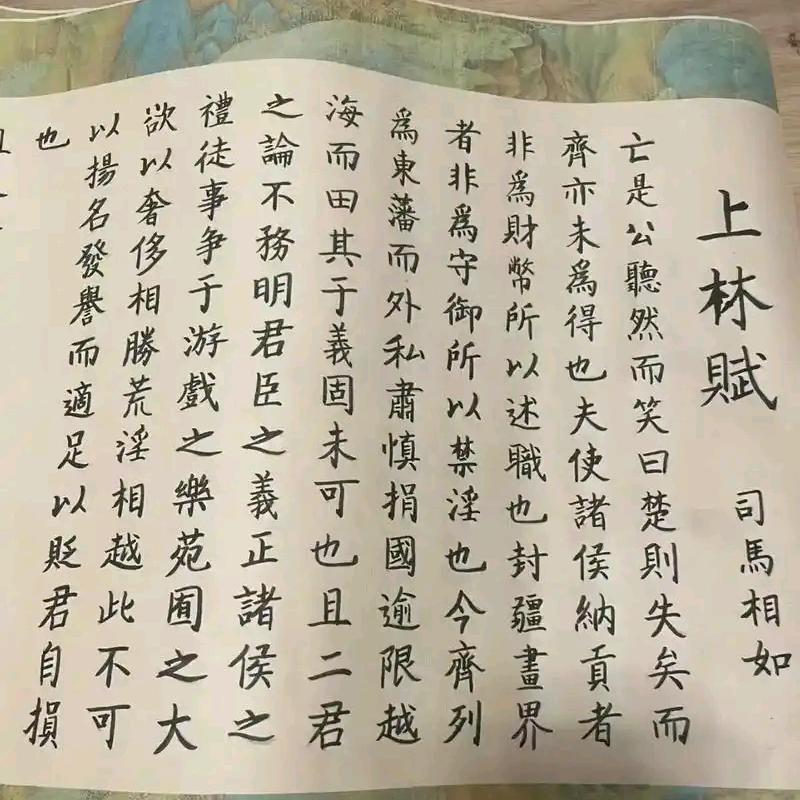 上林賦
司馬相如
亡是公聽然而笑曰楚則失矣而
齊亦未爲得也夫使諸侯納貢者
非爲財幣所以述職也封疆畫界
者非爲守御所以禁淫也今齊列
爲東藩而外私肅慎捐國逾限越
海而田其于義固未可也且二君
之論不務明君臣之義正諸侯之
禮徒事争于游戲之樂苑囿之大
欲以奢侈相勝荒淫相越此不可
以揚名發譽而適足以貶君自損
也